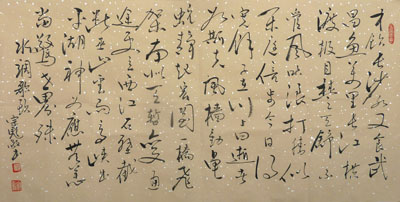 才饮长沙水又食武
昌鱼万里长江横
渡极目楚天舒不
管风吹浪打胜似
闲庭信步今日得
宽馀子在川上曰逝者
如斯夫风樯动龟
蛇静起宏图一桥飞
架南北天堑变通
途更立西江石壁截
断巫山云雨高峡出
平湖神女应无恙
当惊世界殊
水调歌头